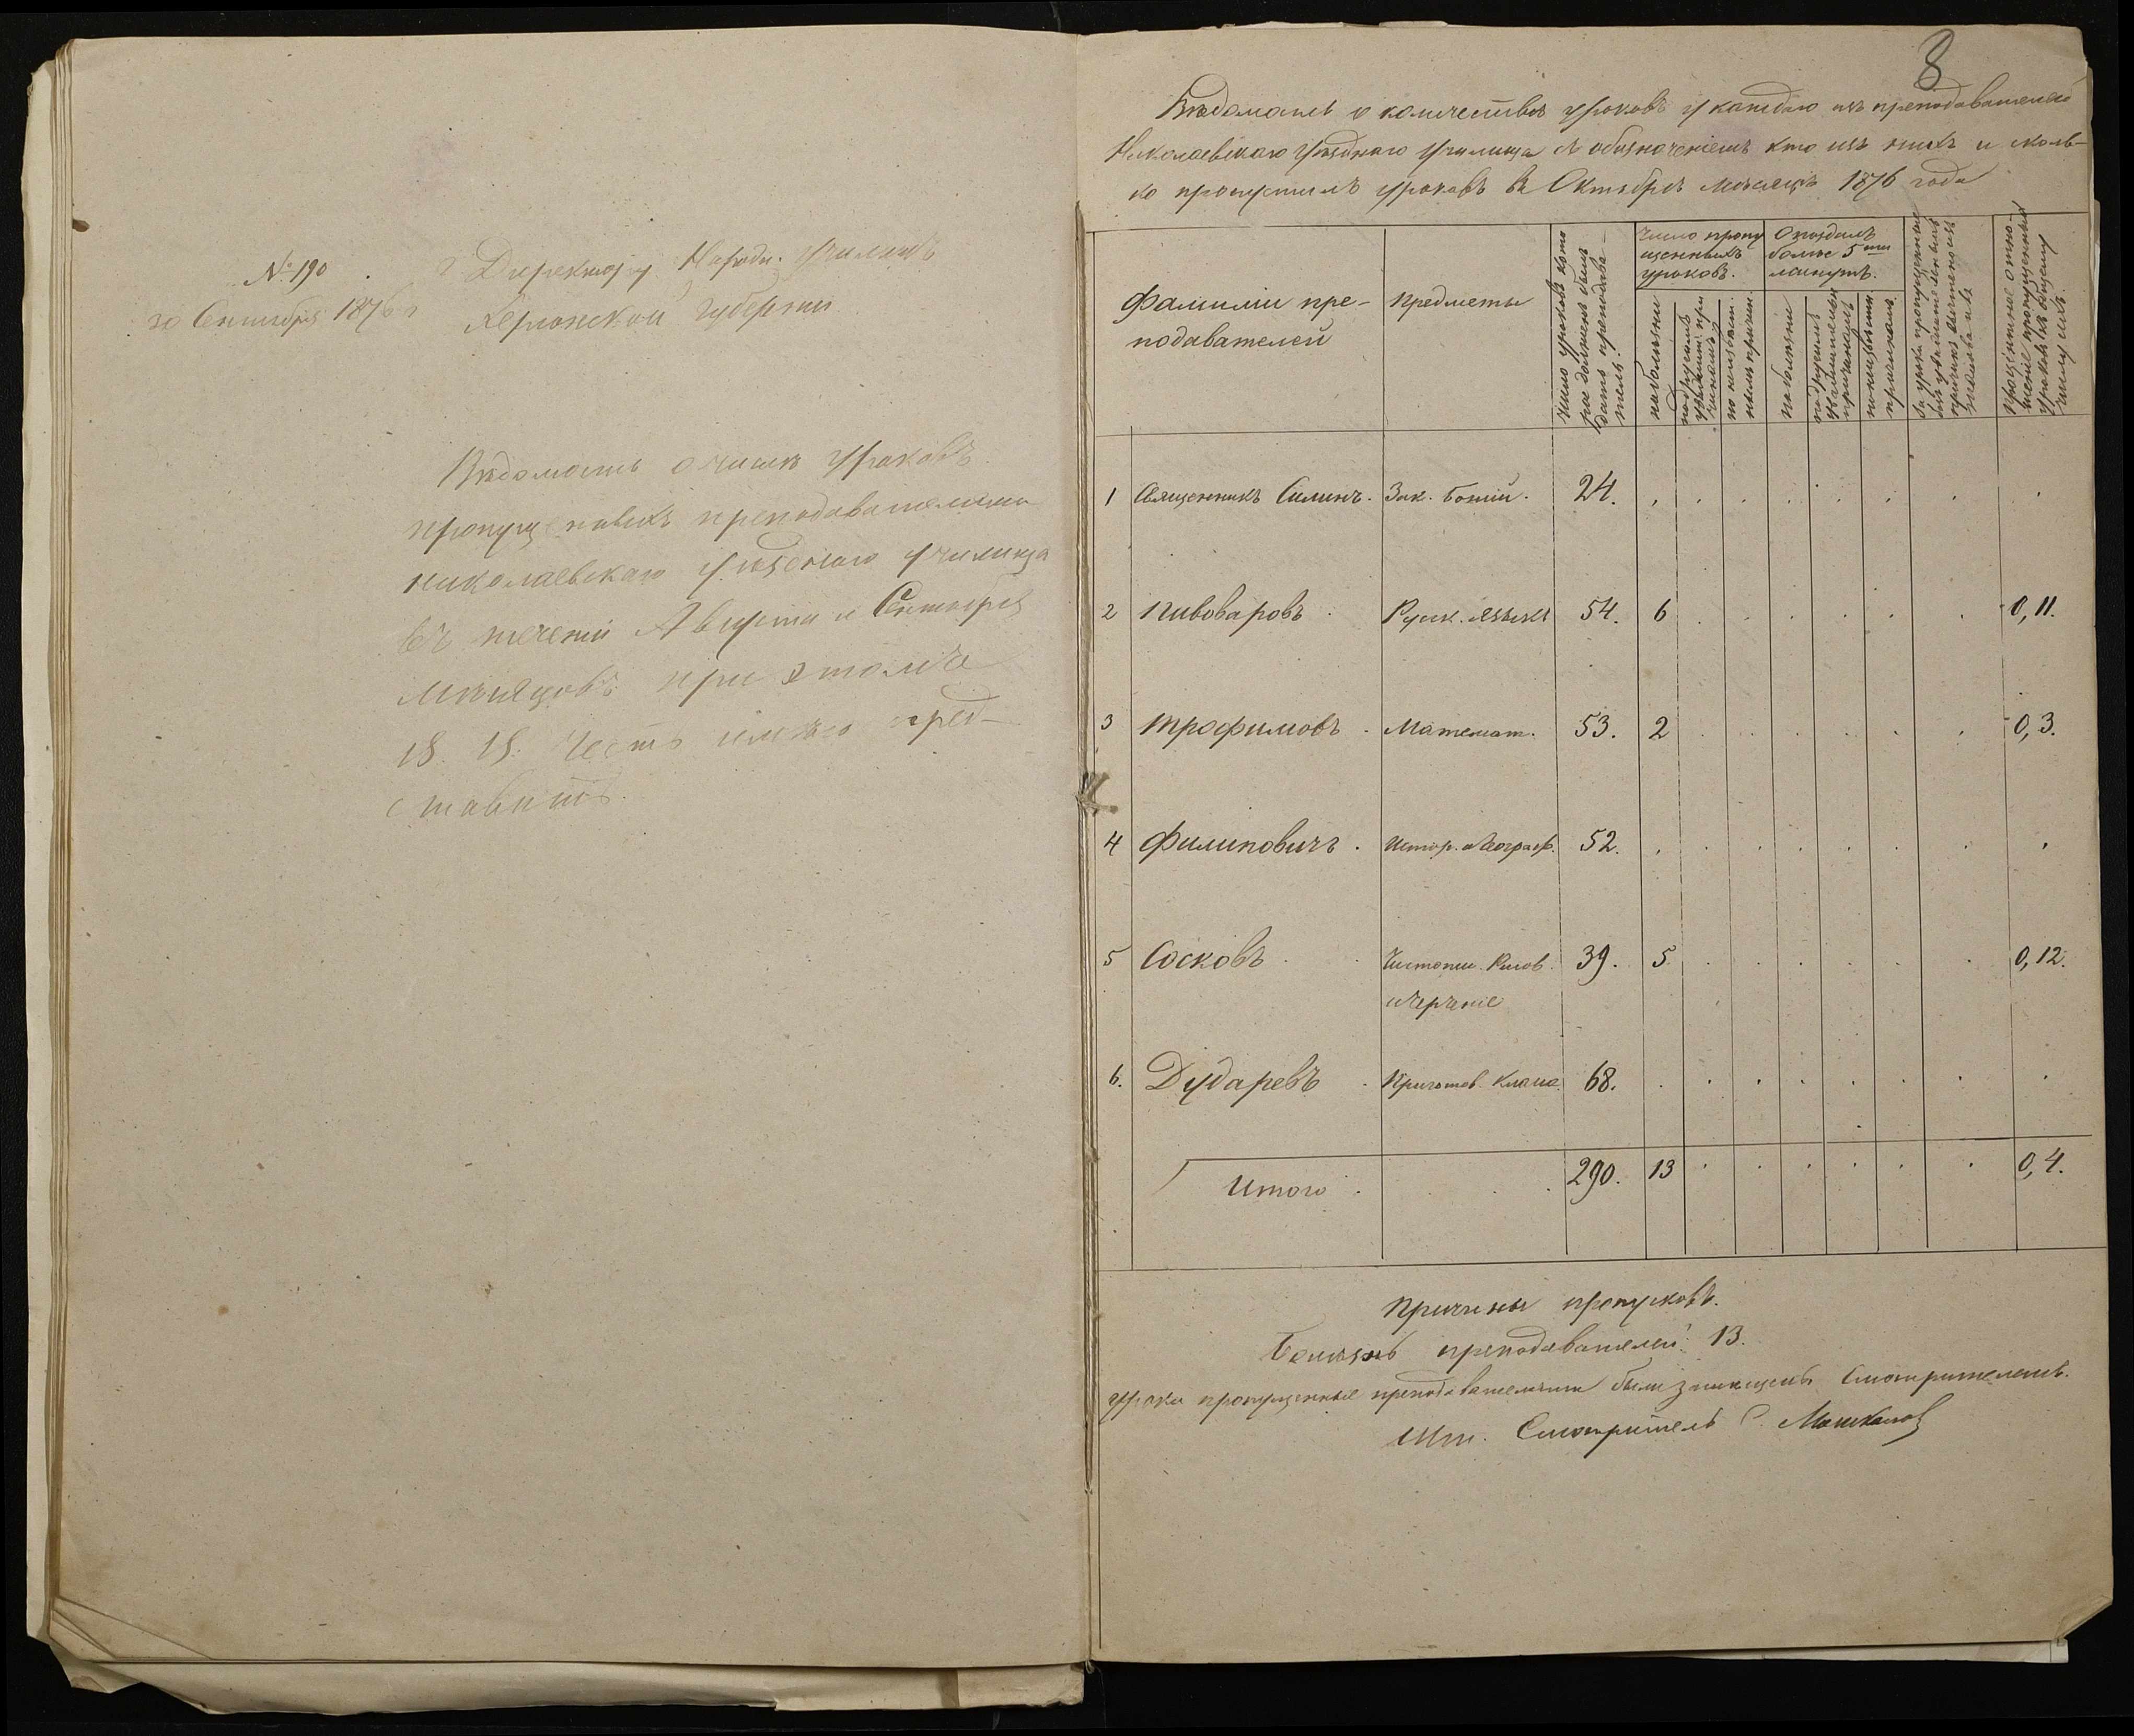 № 190
30 Сентября 1876 г
г Директору Народн. Училищъ
Херсонской Губерніи
Вѣдомость о числѣ уроковъ
пропущенныхъ преподавателями
Николаевскаго Уѣзднаго училища
въ теченіи Августа и Сентября
мѣсяцовъ при этомъ
честь имѣю пред-
ставить.
8
Вѣдомость о количествѣ уроковъ у каждаго изъ преподавателей
Николаевскаго Уѣзднаго Училища съ обозначеніемъ кто изъ нихъ и сколь-
ко пропустилъ уроковъ въ Октябрѣ мѣсяцѣ 1876 года
Фамиліи пре-
подавателей
Предметы
Число уроковъ кото
рое долженъ былъ
дать преподава-
тель.
Число пропу
щенныхъ
уроковъ.
по болѣзни
по другимъ
уважит. при
чинамъ
по неизвѣст.
нымъ причин.
Опоздалъ
болѣе 5ти
минутъ.
по болѣзни
по другимъ
уважительн.
причинамъ
по неизвѣстн
причинамъ
За уроки пропущенные
Процентное отно-
шеніе пропущенныхъ
уроковъ къ общему
числу ихъ.
1 Священникъ Силинъ. Зак. Божій. 24.
2 Пивоваровъ Русск. языкъ 54. 6 0,11.
3 Трофимовъ. Математ. 53. 2 0,3.
4 Филиповичъ. Истор. и Географ. 52.
5 Сосковъ Чистопи. Рисов. 39. 5 0,12.
и Черченіе
6. Дударевъ Приготов. Класс. 68.
Итого 290. 13 0,4.
Причины пропусковъ.
Болѣзнь преподавателей 13.
Уроки пропущенные преподавателями были замѣщены Смотрителемъ.
Шт. Смотритель С.